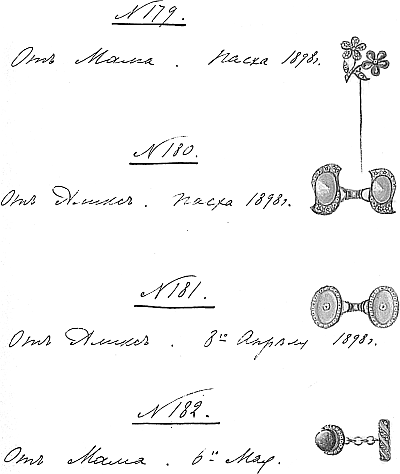 N 179.
Отъ Мама. Пасха 1898 г.
N 180.
Отъ Аликсъ. Пасха 1898 г.
N 181.
Отъ Аликсъ. 8го Апрѣля 1898 г.
N 182.
Отъ Мама. 6го Мая.